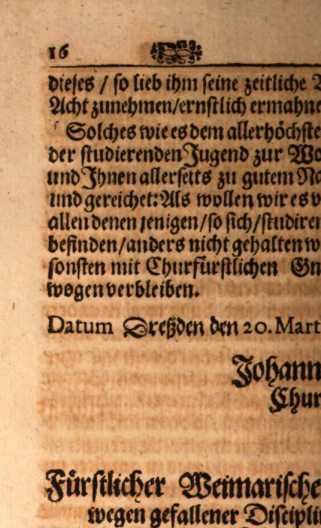 16
dieses / so lieb ihm seine zeitliche
Acht zunehmen/ernstlich ermahne
Solches wie es dem allerhöchste
der studierenden Jugend zur Wo
und Ihnen allerseits zu gutem No
und gereichet: Als wollen wir es v
allen denen jenigen/so sich/studiren
befinden/anders nicht gehalten w
sonsten mit Churfürstlichen Gn
wogen verbleiben.
Datum Dreßden den 20. Mart
Johann
Chur
Fürstlicher Weimarische
wegen gefallener Disciplin